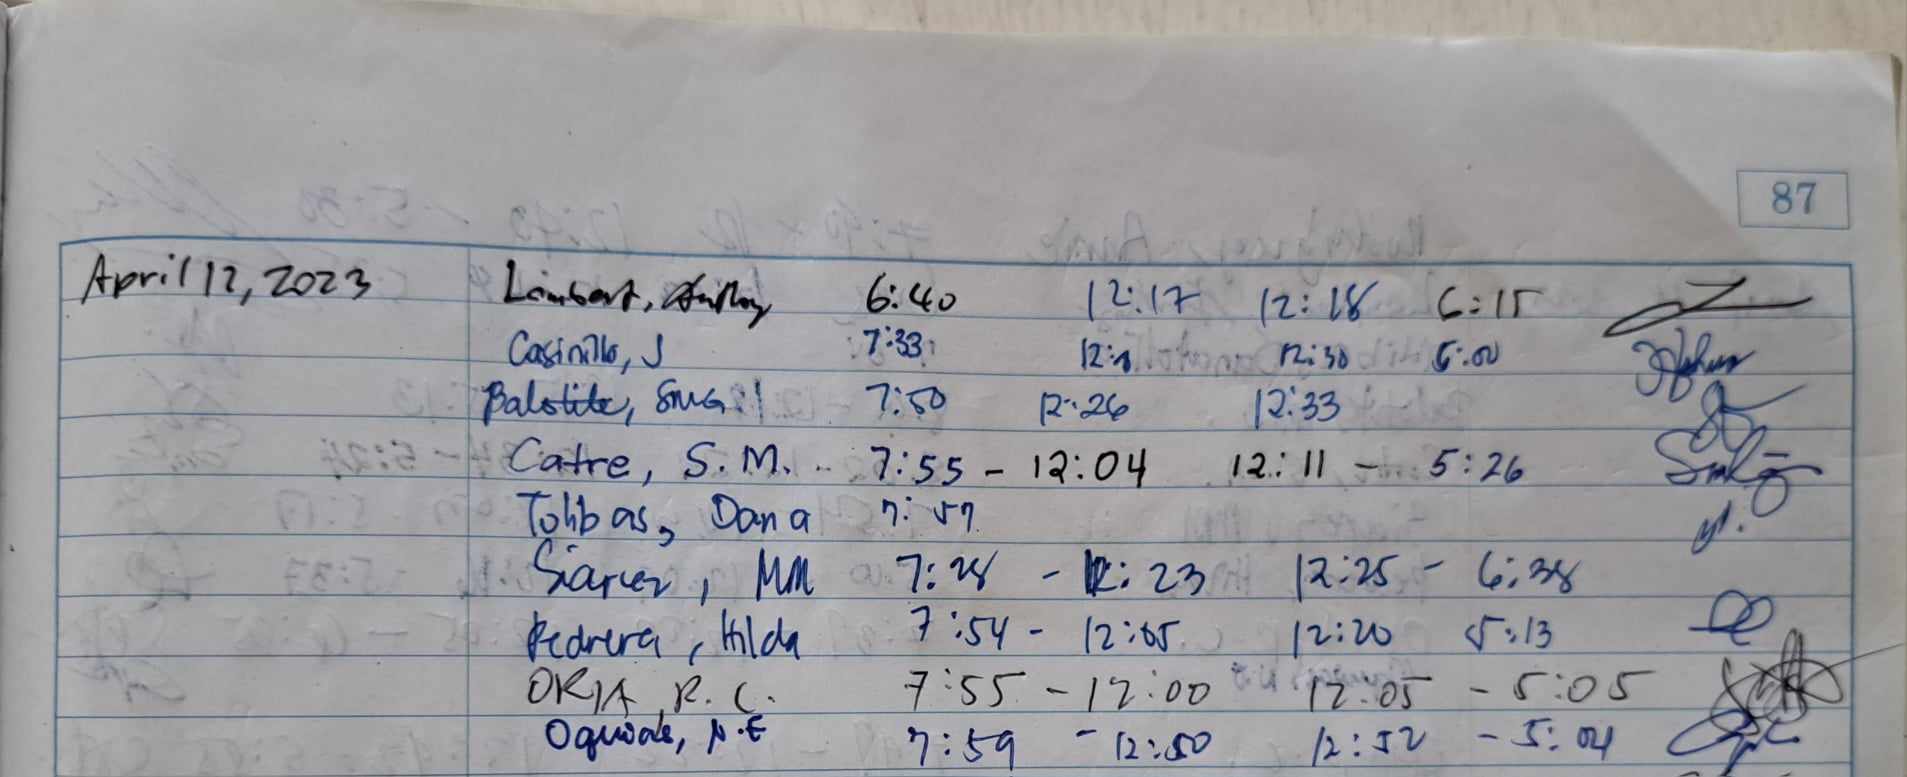 87
April 12, 2023 Limbart, Anthony 6:40 12:17 12:18 6:15
Casinillo, J 7:33 12:30 5:00
Balotite, SMG 7:50 12:26 12:33
Catre, S.M. 7:55 - 12:04 12:11 - 5:26
Tolibas, Dana 7:57
Siarez, MM 7:28 - 12:23 12:25 - 6:38
Pedrera, Hilda 7:54 - 12:05 12:20 5:13
ORIA, R.C. 7:55 - 12:00 12:05 - 5:05
7:59 - 12:50 12:52 - 5:04